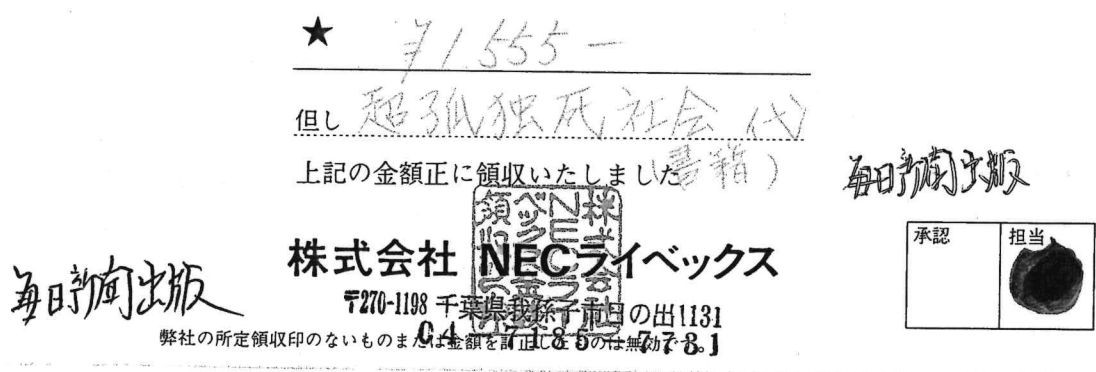 ★ ¥1,555-
但し 超孤独死社会 代
(書籍)
上記の金額正に領収いたしました
毎日新聞出版
承認 担当
株式会社 NECライベックス
毎日新聞出版
〒270-1198 千葉県我孫子市日の出1131
04-7185-7781
弊社の所定領収印のないものまたは金額を訂正したものは無効です。